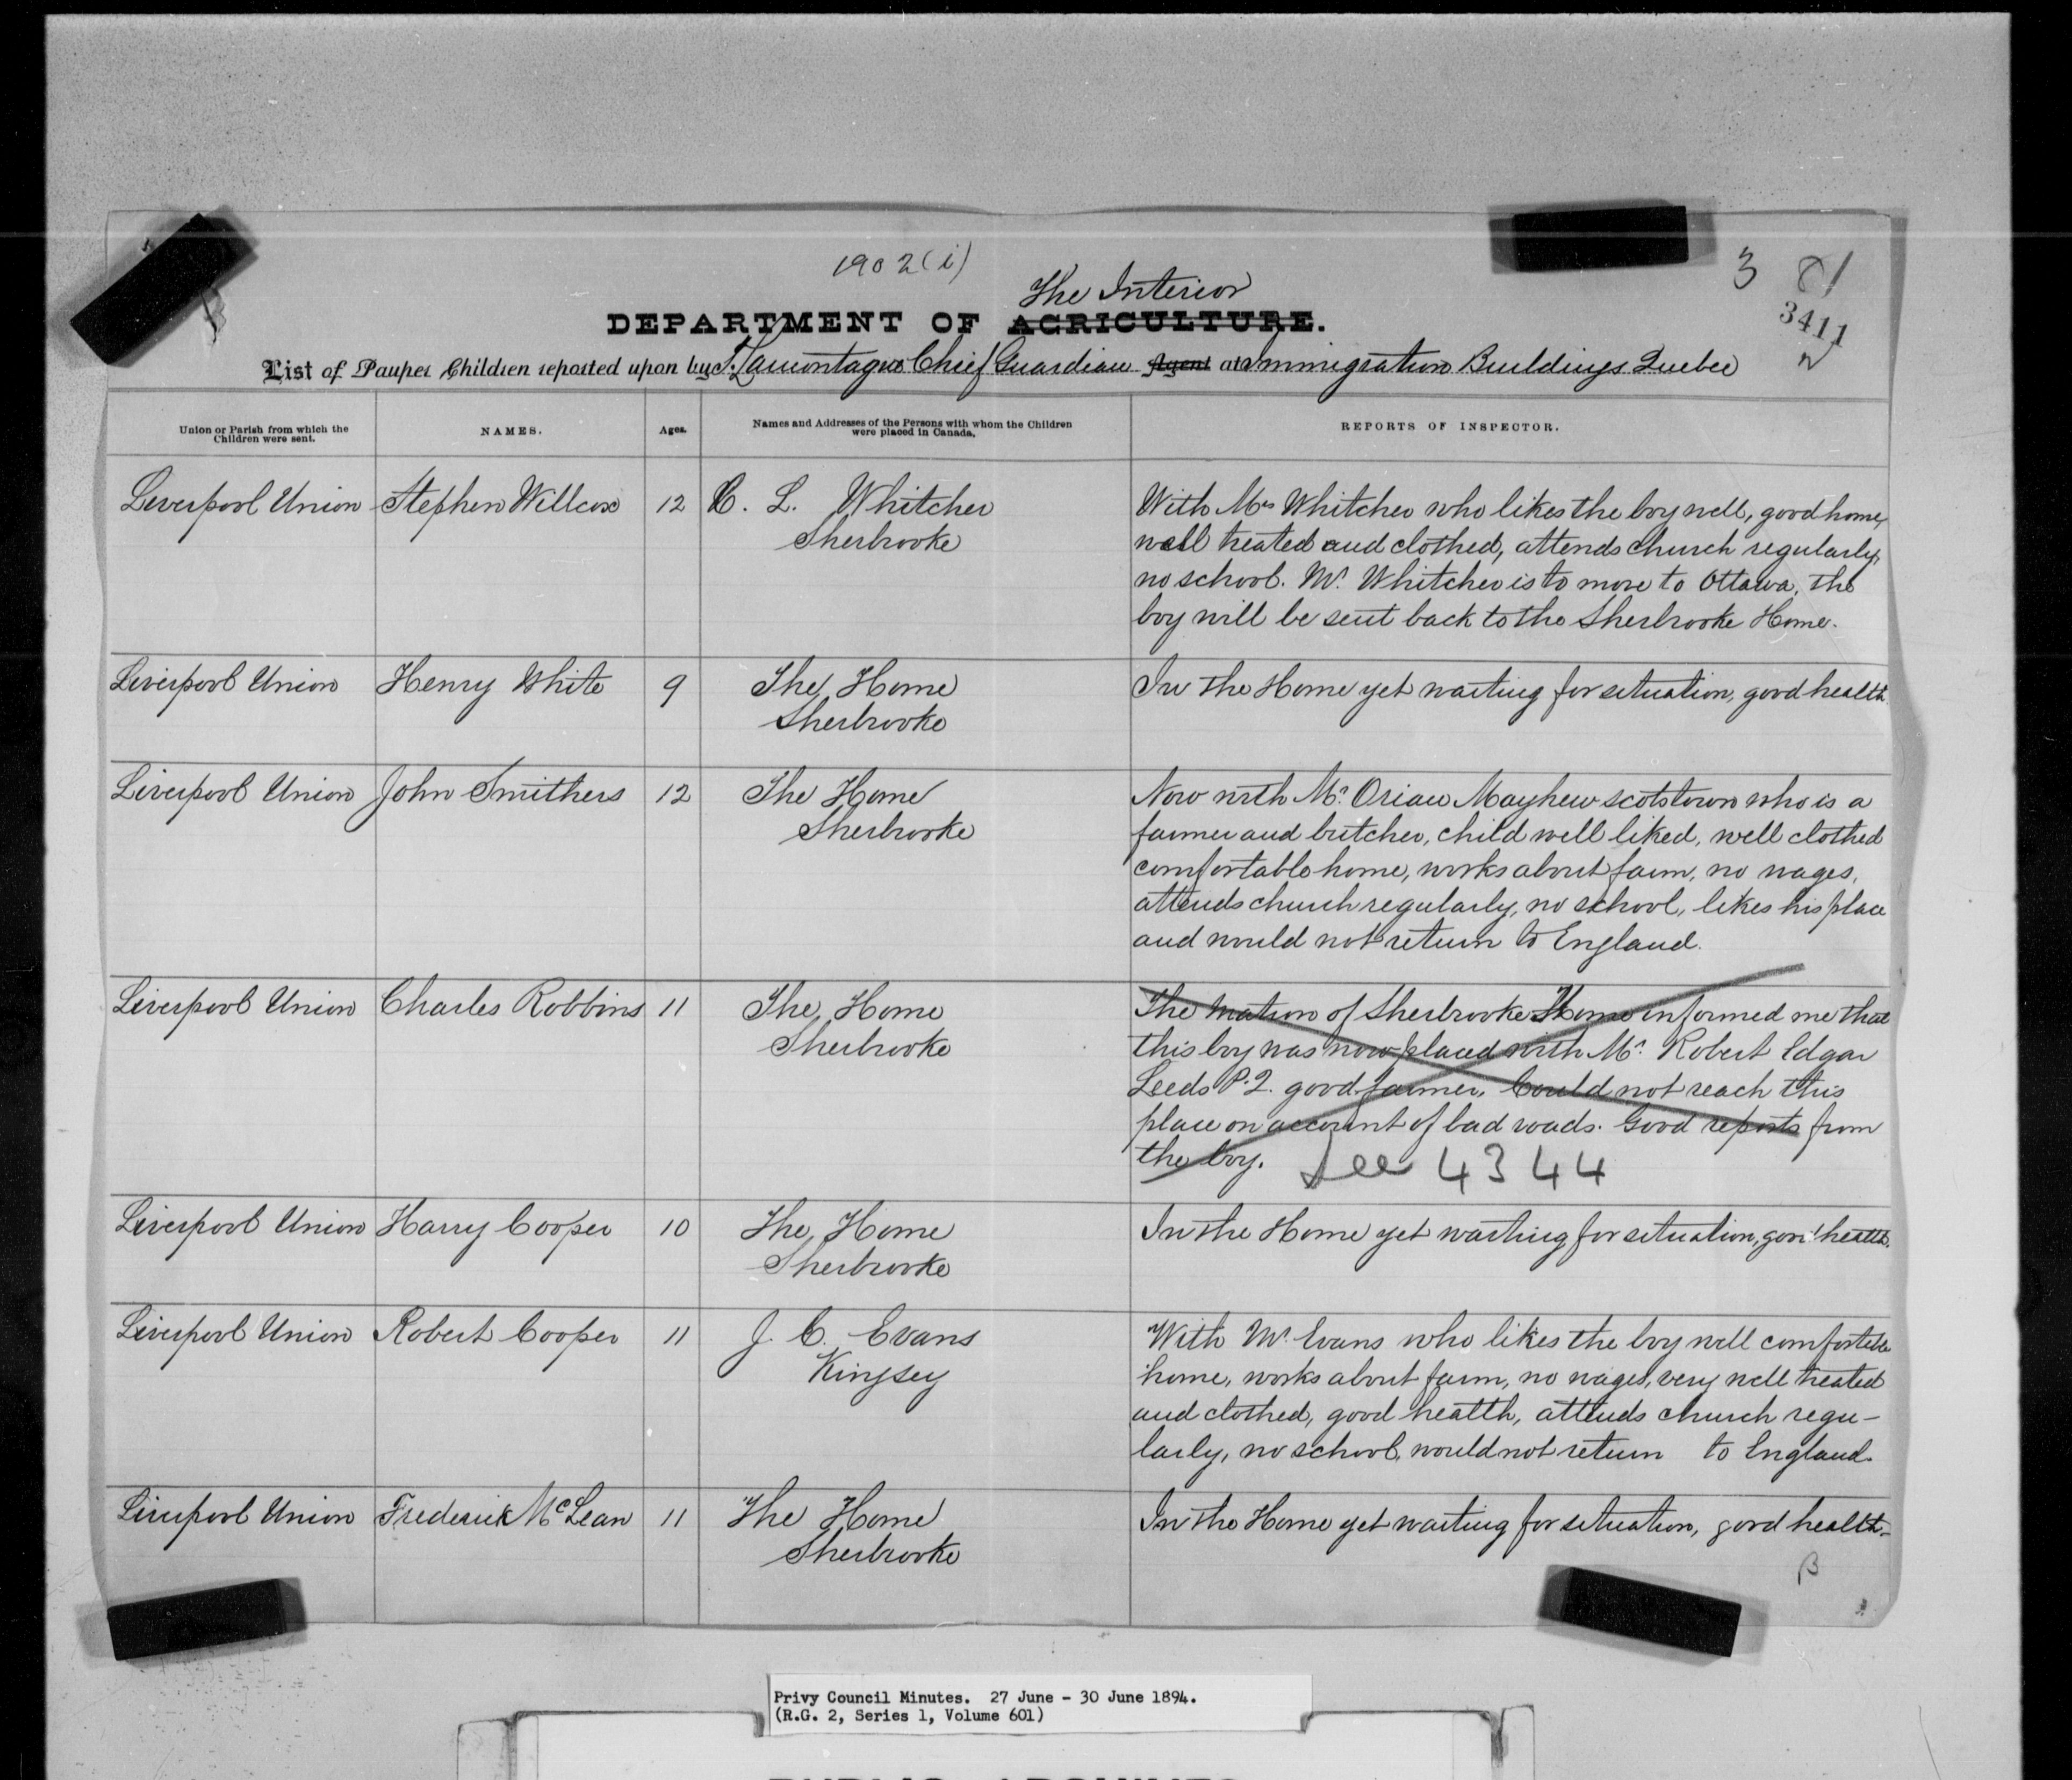 1902(i)
3 81
The Interior
DEPARTMENT OF AGRICULTURE.
3411
List of Pauper Children reported upon by Lamontagne Chief Guardian Agent at Immigration Buildings Quebec
Union or Parish from which the Children were sent.
NAMES.
Ages.
Names and Addresses of the Persons with whom the Children were placed in Canada.
REPORTS OF INSPECTOR.
Liverpool Union Stephen Willcox 12 C. L. Whitcher
Sherbrooke
With Mr Whitcher who likes the boy well, good home,
well treated and clothed, attends church regularly,
no school. Mr. Whitcher is to move to Ottawa, the
boy will be sent back to the Sherbrooke Home.
Liverpool Union Henry White 9 The Home
Sherbrooke
In the Home yet waiting for situation, good health
Liverpool Union John Smithers 12 The Home
Sherbrooke
Now with Mr. Mayhew Scotstown who is a
farmer and butcher, child well liked, well clothed
comfortable home, works about farm, no wages,
attends church regularly, no school, likes his place
and would not return to England.
Liverpool Union Charles Robbins 11 The Home
Sherbrooke
The Matron of Sherbrooke Home informed me that
this boy was now placed with Mr. Robert Edgar
Leeds P.Q. good farmer. Could not reach this
place on account of bad roads. Good reports from
the boy. See 4344
Liverpool Union Harry Cooper 10 The Home
Sherbrooke
In the Home yet waiting for situation, good health.
Liverpool Union Robert Cooper 11 J. C. Evans
Kingsey
With Mr. Evans who likes the boy well comfortable
home, works about farm, no wages, very well treated
and clothed, good health, attends church regu-
larly, no school, would not return to England.
Liverpool Union Frederick McLean 11 The Home
Sherbrooke
In the Home yet waiting for situation, good health.
Privy Council Minutes. 27 June - 30 June 1894.
(R.G. 2, Series 1, Volume 601)
PUBLIC ARCHIVES